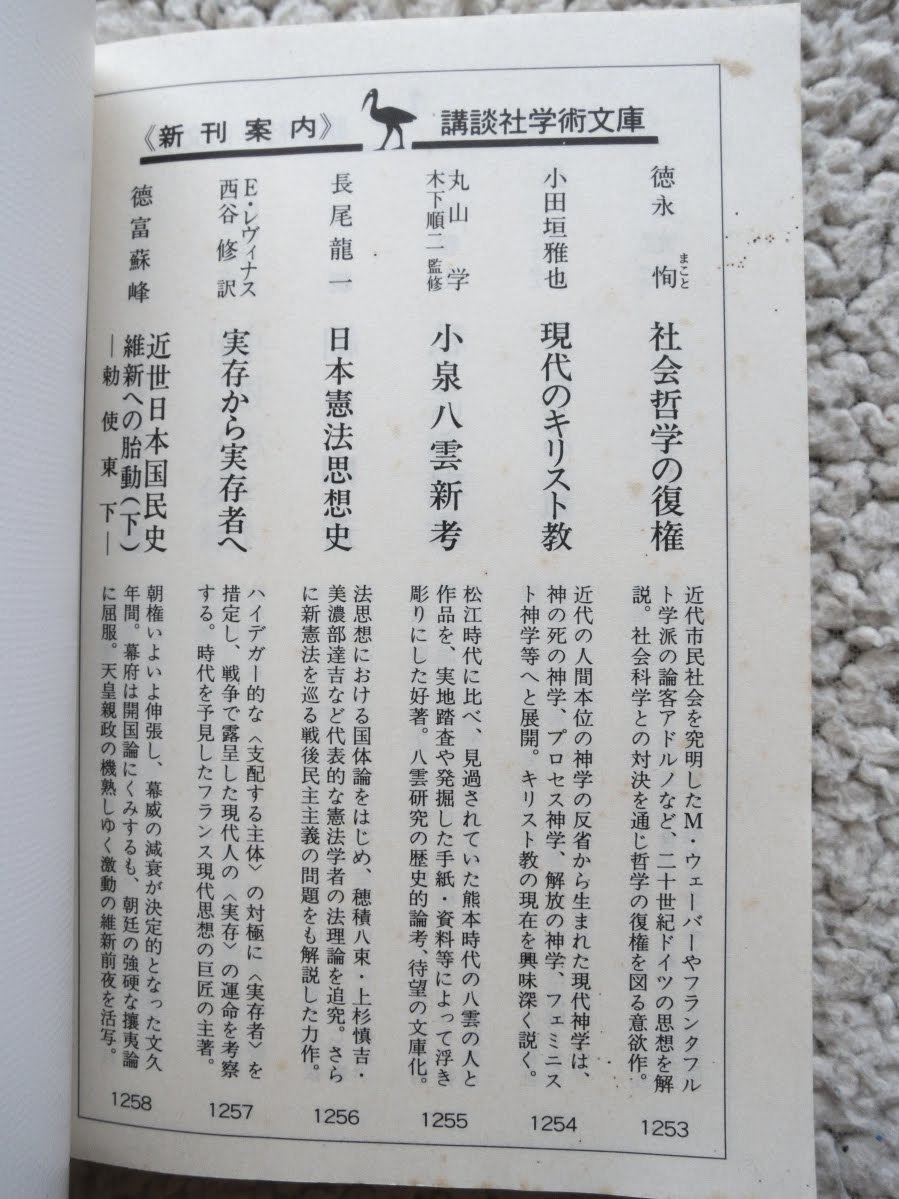 《新刊案内》 講談社学術文庫
徳永 恂
まこと
社会哲学の復権
近代市民社会を究明したM・ウェーバーやフランクフル
ト学派の論客アドルノなど、二十世紀ドイツの思想を解
説。社会科学との対決を通じ哲学の復権を図る意欲作。
1253
小田垣雅也
現代のキリスト教
近代の人間本位の神学の反省から生まれた現代神学は、
神の死の神学、プロセス神学、解放の神学、フェミニス
ト神学等へと展開。キリスト教の現在を興味深く説く。
1254
丸山 学
木下順二 監修
小泉八雲新考
松江時代に比べ、見過されていた熊本時代の八雲の人と
作品を、実地踏査や発掘した手紙・資料等によって浮き
彫りにした好著。八雲研究の歴史的論考、待望の文庫化。
1255
長尾龍一
日本憲法思想史
法思想における国体論をはじめ、穂積八束・上杉慎吉・
美濃部達吉など代表的な憲法学者の法理論を追究。さら
に新憲法を巡る戦後民主主義の問題をも解説した力作。
1256
E・レヴィナス
西谷 修 訳
実存から実存者へ
ハイデガー的な〈支配する主体〉の対極に〈実存者〉を
措定し、戦争で露呈した現代人の〈実存〉の運命を考察
する。時代を予見したフランス現代思想の巨匠の主著。
1257
徳富蘇峰
近世日本国民史
維新への胎動(下)
―勅使東下―
朝権いよいよ伸張し、幕威の減衰が決定的となった文久
年間。幕府は開国論にくみするも、朝廷の強硬な攘夷論
に屈服。天皇親政の機熟しゆく激動の維新前夜を活写。
1258